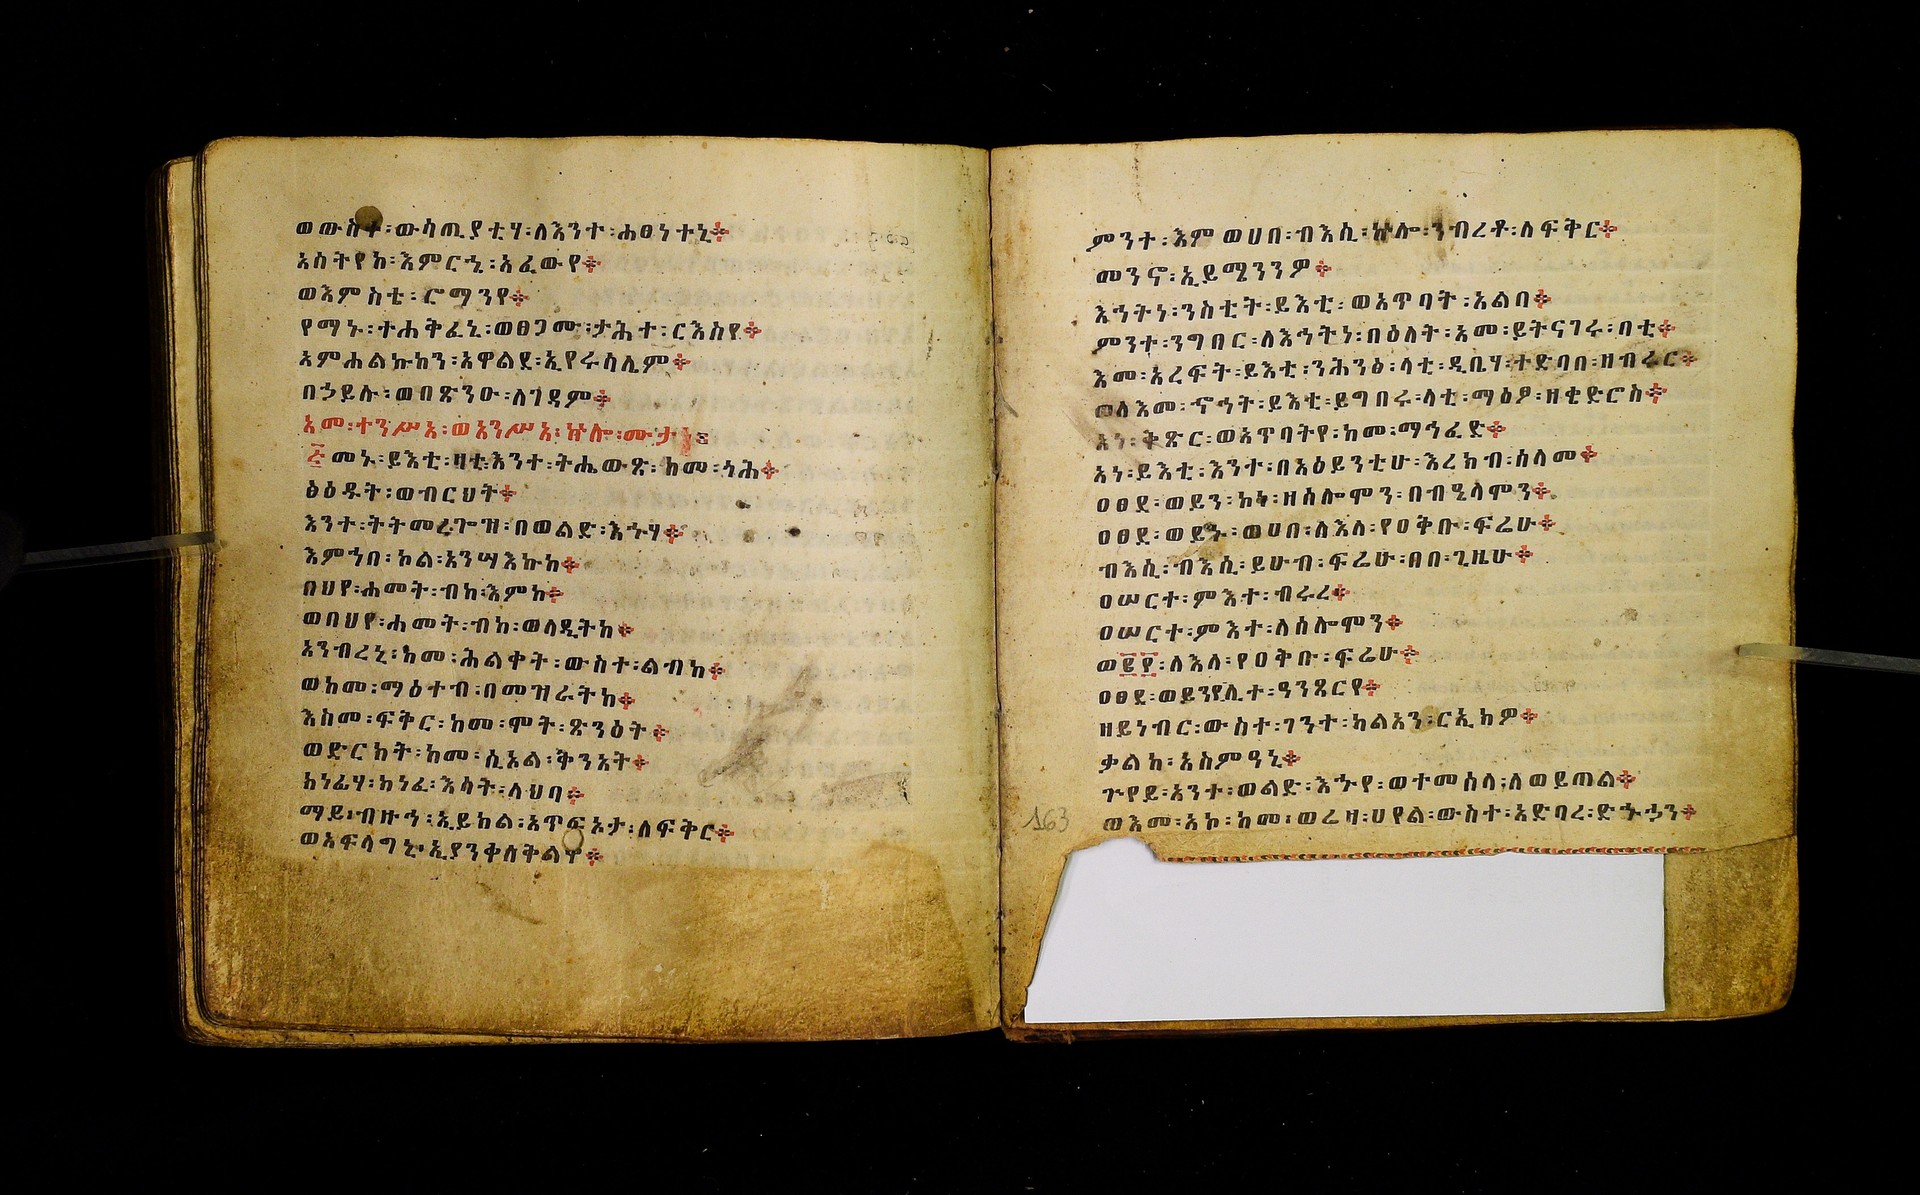 ወውስተ፡ውሳጢያቲሃ፡ለእንተ፡ሐፀነተኒ።
አስትየከ፡እምርኄ፡አፈውየ።
ወእምስቲ፡ሮማንየ።
የማኑ፡ተሐቅፈኒ፡ወፀጋሙ፡ታሕተ፡ርእስየ።
አምሐልኩክን፡አዋልደ፡ኢየሩሳሊም።
በኃይሉ፡ወበጽንዑ፡ለገዳም።
አመ፡ተንሥአ፡ወአንሥአ፡ኵሎ፡ሙታነ
፭መኑ፡ይእቲ፡ዛቲ፡እንተ፡ትሔውጽ፡ከመ፡ጎሕ።
ፅዕዱት፡ወብርህት።
እንተ፡ትትመረጕዝ፡በወልድ፡እኁሃ።
እምኀበ፡ኮል፡አንሣእኩከ።
በህየ፡ሐመት፡ብከ፡እምከ።
ወበህየ፡ሐመት፡ብከ፡ወላዲትከ።
አንብረኒ፡ከመ፡ሕልቀት፡ውስተ፡ልብከ።
ወከመ፡ማዕተብ፡በመዝራትከ።
እስመ፡ፍቅር፡ከመ፡ሞት፡ጽንዕት።
ወድርክት፡ከመ፡ሲኦል፡ቅንአት።
ክነፊሃ፡ክነፈ፡እሳት፡ላህባ።
ማይ፡ብዙኅ፡ኢይክል፡አጥፍኦታ፡ለፍቅር።
ወአፍላግኒ፡ኢያንቀለቅልዋ።
ምንተ፡እም ወሀበ፡ብእሲ፡ኵሎ፡ንብረቶ፡ለፍቅር።
መንኖ፡ኢይሜንንዎ።
እኅትነ፡ንስቲት፡ይእቲ፡ወአጥባት፡አልባ።
ምንተ፡ንግበር፡ለእኅትነ፡በዕለት፡አመ፡ይትናገሩ፡በቲ።
እመ፡አረፍት፡ይእቲ፡ንሕንፅ፡ላቲ፡ዲቢሃ፡ተድባበ፡ዘብሩር።
ወለእመ፡ኆኅት፡ይእቲ፡ይግበሩ፡ላቲ፡ማዕፆ፡ዘቄድሮስ።
አነ፡ቅጽር፡ወአጥባትየ፡ከመ፡ማኅፈድ።
አነ፡ይእቲ፡እንተ፡በአዕይንቲሁ፡እረክብ፡ሰላመ።
ዐፀደ፡ወይን፡ኮነ፡ዘሰሎሞን፡በብዔላሞን።
ዐፀደ፡ወይኑ፡ወሀበ፡ለእለ፡የዐቅቡ፡ፍሬሁ።
ብእሲ፡ብእሲ፡ይሁብ፡ፍሬሁ፡በበ፡ጊዜሁ።
ዐሠርተ፡ምእተ፡ብሩረ።
ዐሠርተ፡ምእተ፡ለሰሎሞን።
ወ፪፻፡ለእለ፡የዐቅቡ፡ፍሬሁ።
ዐፀደ፡ወይንየሊተ፡ዓንጻርየ።
ዘይነብር፡ውስተ፡ገንተ፡ካልአን፡ርኢክዎ።
ቃልከ፡አስምዓኒ።
ጕየይ፡አንተ፡ወልድ፡እኁየ፡ወተመሰላ፡ለወይጠል።
163
ወእመ፡አኮ፡ከመ፡ወሬዛ፡ሀየል፡ውስተ፡አድባረ፡ድኁኃን።